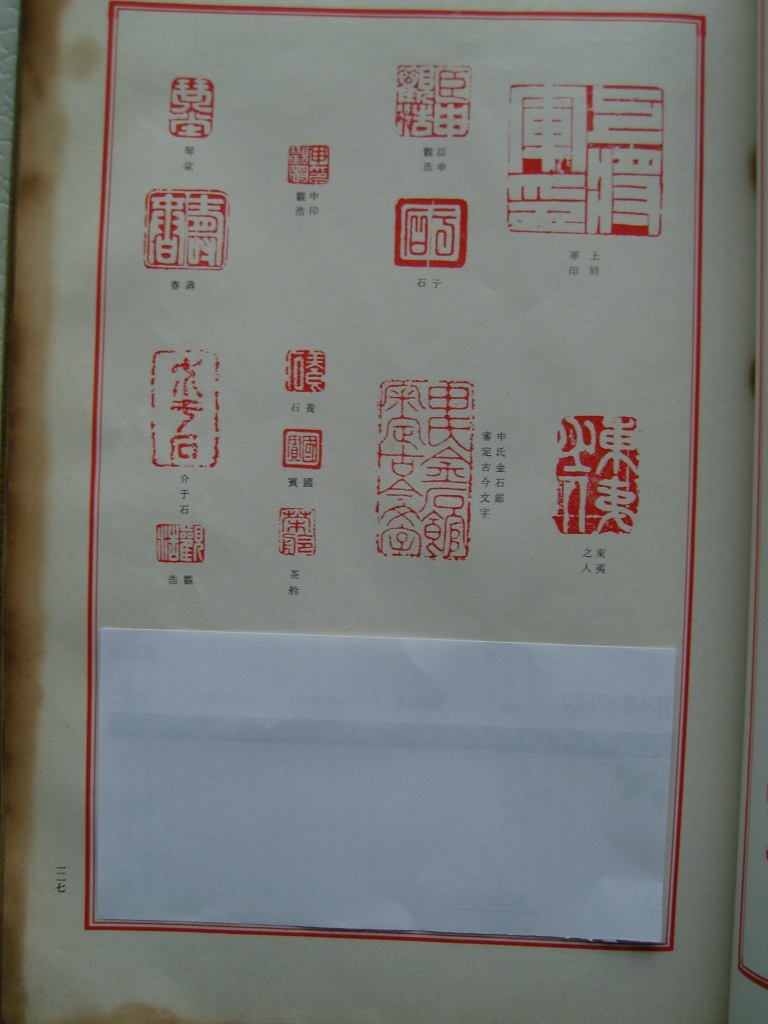 上將
軍印
臣申
觀浩
于石
申印
觀浩
琴堂
壽春
東夷
之人
申氏金石館
審定古今文字
養石
國賓
茶舲
介于石
觀浩
一二七